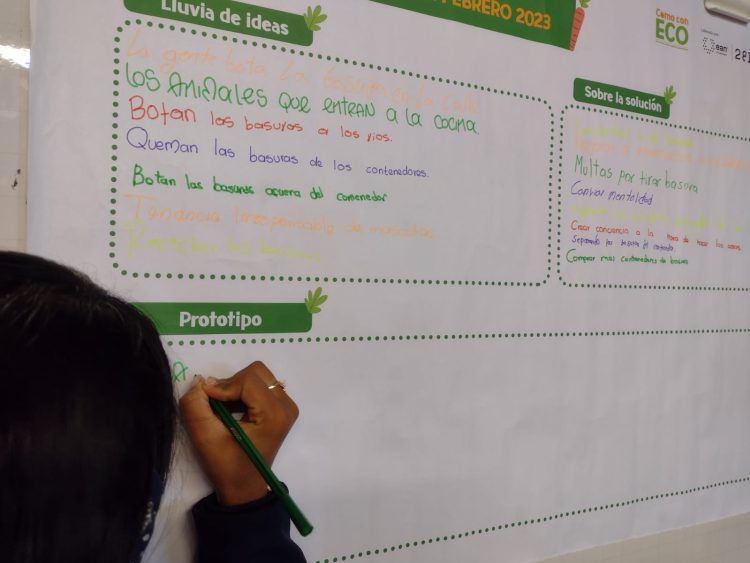 FEBRERO 2023
Como con
ECO
ean
281
Lluvia de ideas
La gente bota la basura en la calle
los Animales que entran a la cocina.
Botan las basuras a los rios.
Queman las basuras de los contenedores.
Botan las basuras afuera del contenedor
Tenancia Irresponsable de mascotas
las basuras
Sobre la solución
Multas por tirar basura
Cambiar mentalidad
Crear conciencia a la hora de hacer las cosas
Separando por
Comprar mas contenedores de basura
Prototipo